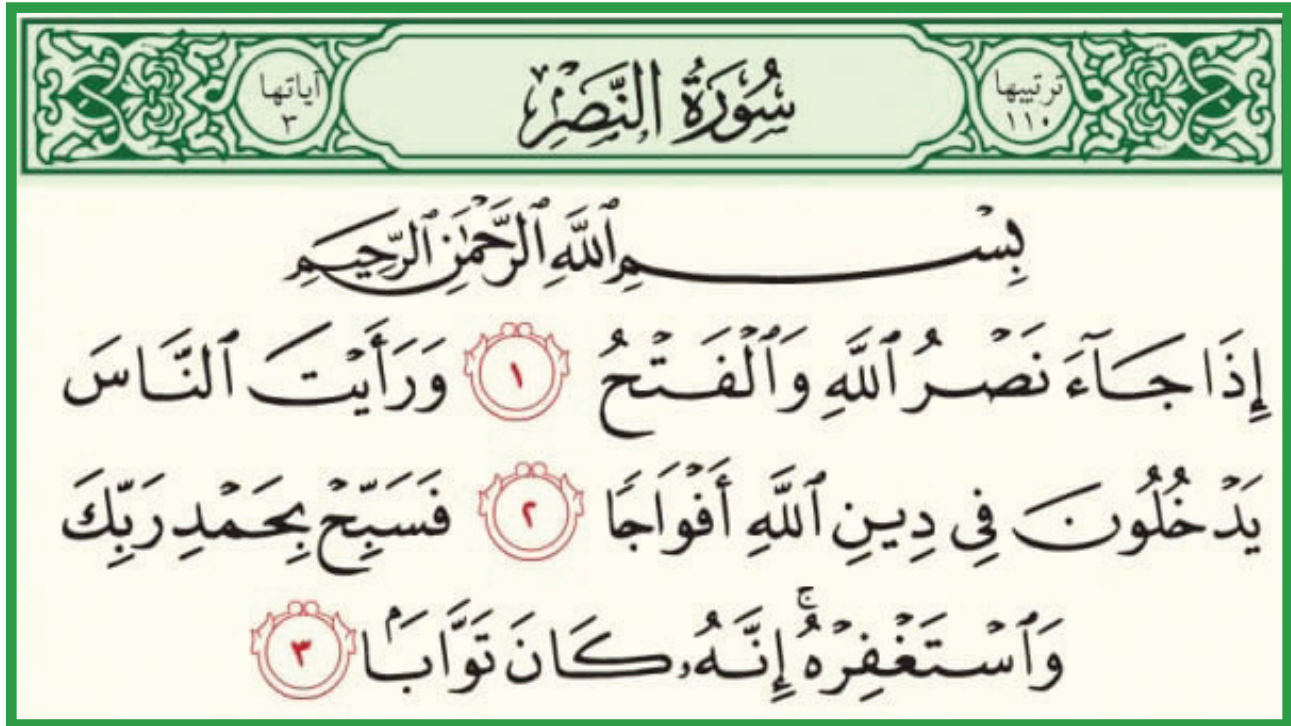 ترتيبها
١١٠
سُورَةُ النَّصْرِ
آياتها
٣
بِسْمِ ٱللَّهِ ٱلرَّحْمَٰنِ ٱلرَّحِيمِ
إِذَا جَآءَ نَصْرُ ٱللَّهِ وَٱلْفَتْحُ ١ وَرَأَيْتَ ٱلنَّاسَ
يَدْخُلُونَ فِى دِينِ ٱللَّهِ أَفْوَاجًا ٢ فَسَبِّحْ بِحَمْدِ رَبِّكَ
وَٱسْتَغْفِرْهُ ۚ إِنَّهُۥ كَانَ تَوَّابًۢا ٣